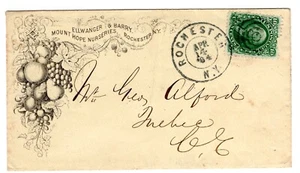 ELLWANGER & BARRY,
MOUNT HOPE NURSERIES, ROCHESTER, N.Y.
ROCHESTER
APR
N.Y.
Mr Geo. Alford
Quebec
C. E.